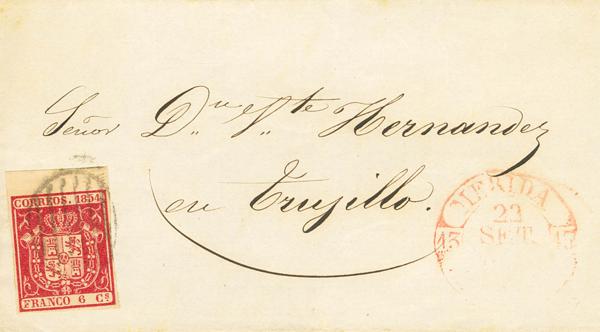 Señor D.n V.te Hernandez
en Trujillo.
CORREOS. 1854
FRANCO 6 Cs
MERIDA
22
SET.